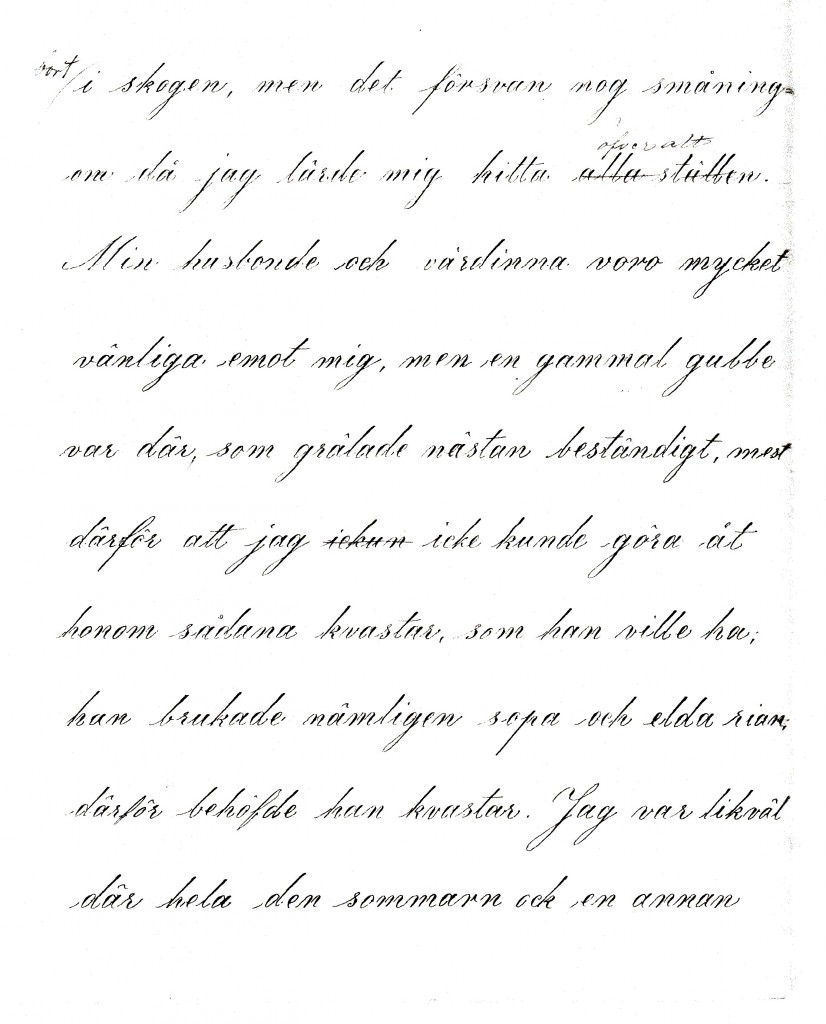 bort
/i skogen, men det försvan nog småning=
öfver allt
om då jag lärde mig hitta alla ställen.
Min husbonde och värdinna voro mycket
vänliga emot mig, men en gammal gubbe
var där, som grälade nästan beständigt, mest
därför att jag ickun icke kunde göra åt
honom sådana kvastar, som han ville ha;
han brukade nämligen sopa och elda rian;
därför behöfde han kvastar. Jag var likväl
där hela den sommarn ock en annan